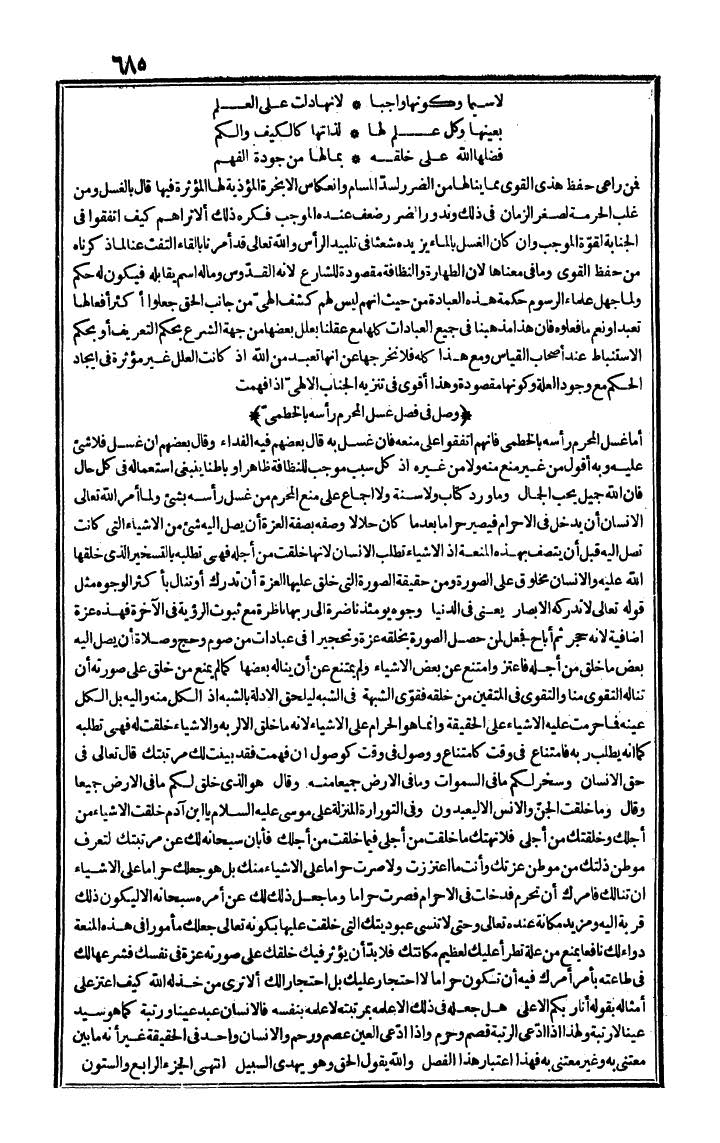 ٦٨٥
لاسيما وكونها واجبا * لانها دلت على العلم
بعينها وكل علم لها * لذاتها كالكيف والكم
فضلها الله على خلقه * بما لها من جودة الفهم
فمن راعى حفظ هذى القوى مما ينالها من الضرر لسدّ المسام وانعكاس الابخرة المؤذية لها المؤثرة فيها قال بالغسل ومن
غلب الحرمة لصغر الزمان فى ذلك وندور الضر رضعف عنده الموجب فكره ذلك ألا تراهم كيف اتفقوا فى
الجنابة لقوّة الموجب وان كان الغسل بالماء يزيده شعثا فى تلبيد الرأس والله تعالى قد أمرنا بالقاء التفث عنا لما ذكرناه
من حفظ القوى وما فى معناها لان الطهارة والنظافة مقصودة للشارع لانه القدّوس وماله اسم يقابله فيكون له حكم
ولما جهل علماء الرسوم حكمة هذه العبادة من حيث انهم ليس لهم كشف الهىّ من جانب الحق جعلوا أكثر أفعالها
تعبدا ونعم ما فعلوه فان هذا مذهبنا فى جميع العبادات كلها مع عقلنا بعلل بعضها من جهة الشرع بحكم التعريف أو بحكم
الاستنباط عند أصحاب القياس ومع هذا كله فلا نخرجها عن انها تعبد من الله اذ كانت العلل غير مؤثرة فى ايجاد
الحكم مع وجود العلة وكونها مقصودة وهذا أقوى فى تنزيه الجناب الالهىّ اذا فهمت
﴿وصل فى فصل غسل المحرم رأسه بالخطمىّ﴾
أما غسل المحرم رأسه بالخطمى فانهم اتفقوا على منعه فان غسل به قال بعضهم فيه الفداء وقال بعضهم ان غسل فلا شئ
عليه وبه أقول من غير منع منه ولا من غيره اذ كل سبب موجب للنظافة ظاهرا وباطنا ينبغى استعماله فى كل حال
فان الله جميل يحب الجمال وما ورد كتاب ولا سنة ولا اجماع على منع المحرم من غسل رأسه بشئ ولما أمر الله تعالى
الانسان أن يدخل فى الاحرام فيصير حراما بعدما كان حلالا وصفه بصفة العزة أن يصل اليه شئ من الاشياء التى كانت
تصل اليه قبل أن يتصف بهذه المنعة اذ الاشياء تطلب الانسان لانها خلقت من أجله فهى تطلبه بالتسخير الذى خلقها
الله عليه والانسان مخلوق على الصورة ومن حقيقة الصورة التى خلق عليها العزة أن تدرك أو تنال بأكثر الوجوه مثل
قوله تعالى لا تدركه الابصار يعنى فى الدنيا وجوه يومئذ ناضرة الى ربها ناظرة مع ثبوت الرؤية فى الآخرة فهذه عزة
اضافية لانه حجر ثم أباح فجعل لمن حصل الصورة بخلقه عزة وتحجيرا فى عبادات من صوم وحج وصلاة أن يصل اليه
بعض ما خلق من أجله فاعتز وامتنع عن بعض الاشياء ولم يمتنع عن أن يناله بعضها كما لم يمنع من خلق على صورته أن
تناله التقوى منا والتقوى فى المتقين من خلقه فقوّى الشبهة فى الشبه ليلحق الادلة بالشبه اذ الكل منه واليه بل الكل
عينه فما حرمت عليه الاشياء على الحقيقة وانما هو الحرام على الاشياء لانه ما خلق الا لربه والاشياء خلقت له فهى تطلبه
كما انه يطلب ربه فامتناع فى وقت كامتناع ووصول فى وقت كوصول ان فهمت فقد بينت لك مرتبتك قال تعالى فى
حق الانسان وسخر لكم ما فى السموات وما فى الارض جميعا منه وقال هو الذى خلق لكم ما فى الارض جميعا
وقال وما خلقت الجنّ والانس الا ليعبدون وفى التوراة المنزلة على موسى عليه السلام يا ابن آدم خلقت الاشياء من
أجلك وخلقتك من أجلى فلا تهتك ما خلقت من أجلى فيما خلقت من أجلك فأبان سبحانه لك عن مرتبتك لتعرف
موطن ذلتك من موطن عزتك وأنت ما اعتززت ولا صرت حراما على الاشياء منك بل هو جعلك حراما على الاشياء
ان تنالك فامرك أن تحرم فدخلت فى الاحرام فصرت حراما وما جعل ذلك لك عن أمره سبحانه الا ليكون ذلك
قربة اليه ومزيد مكانة عنده تعالى وحتى لا تنسى عبوديتك التى خلقت عليها بكونه تعالى جعلك مأمورا فى هذه المنعة
دواء لك نافعا يمنع من علة تطرأ عليك لعظيم مكانتك فلا بدّ أن يؤثر فيك خلقك على صورته عزة فى نفسك فشرعها لك
فى طاعته بأمر أمرك فيه أن تكون حراما لا احتجار عليك بل احتجارا لك ألا ترى من خذله الله كيف اعتز على
أمثاله بقوله أنا ربكم الاعلى هل جعله فى ذلك الا علمه بمرتبته لا علمه بنفسه فالانسان عبد عينا ورتبة كما هو سيد
عينا لا رتبة ولهذا اذا ادّعى الرتبة قصم وحرم واذا ادّعى العين عصم ورحم والانسان واحد فى الحقيقة غير أنه ما بين
معتنى به وغير معتنى به فهذا اعتبار هذا الفصل والله يقول الحق وهو يهدى السبيل انتهى الجزء الرابع والستون